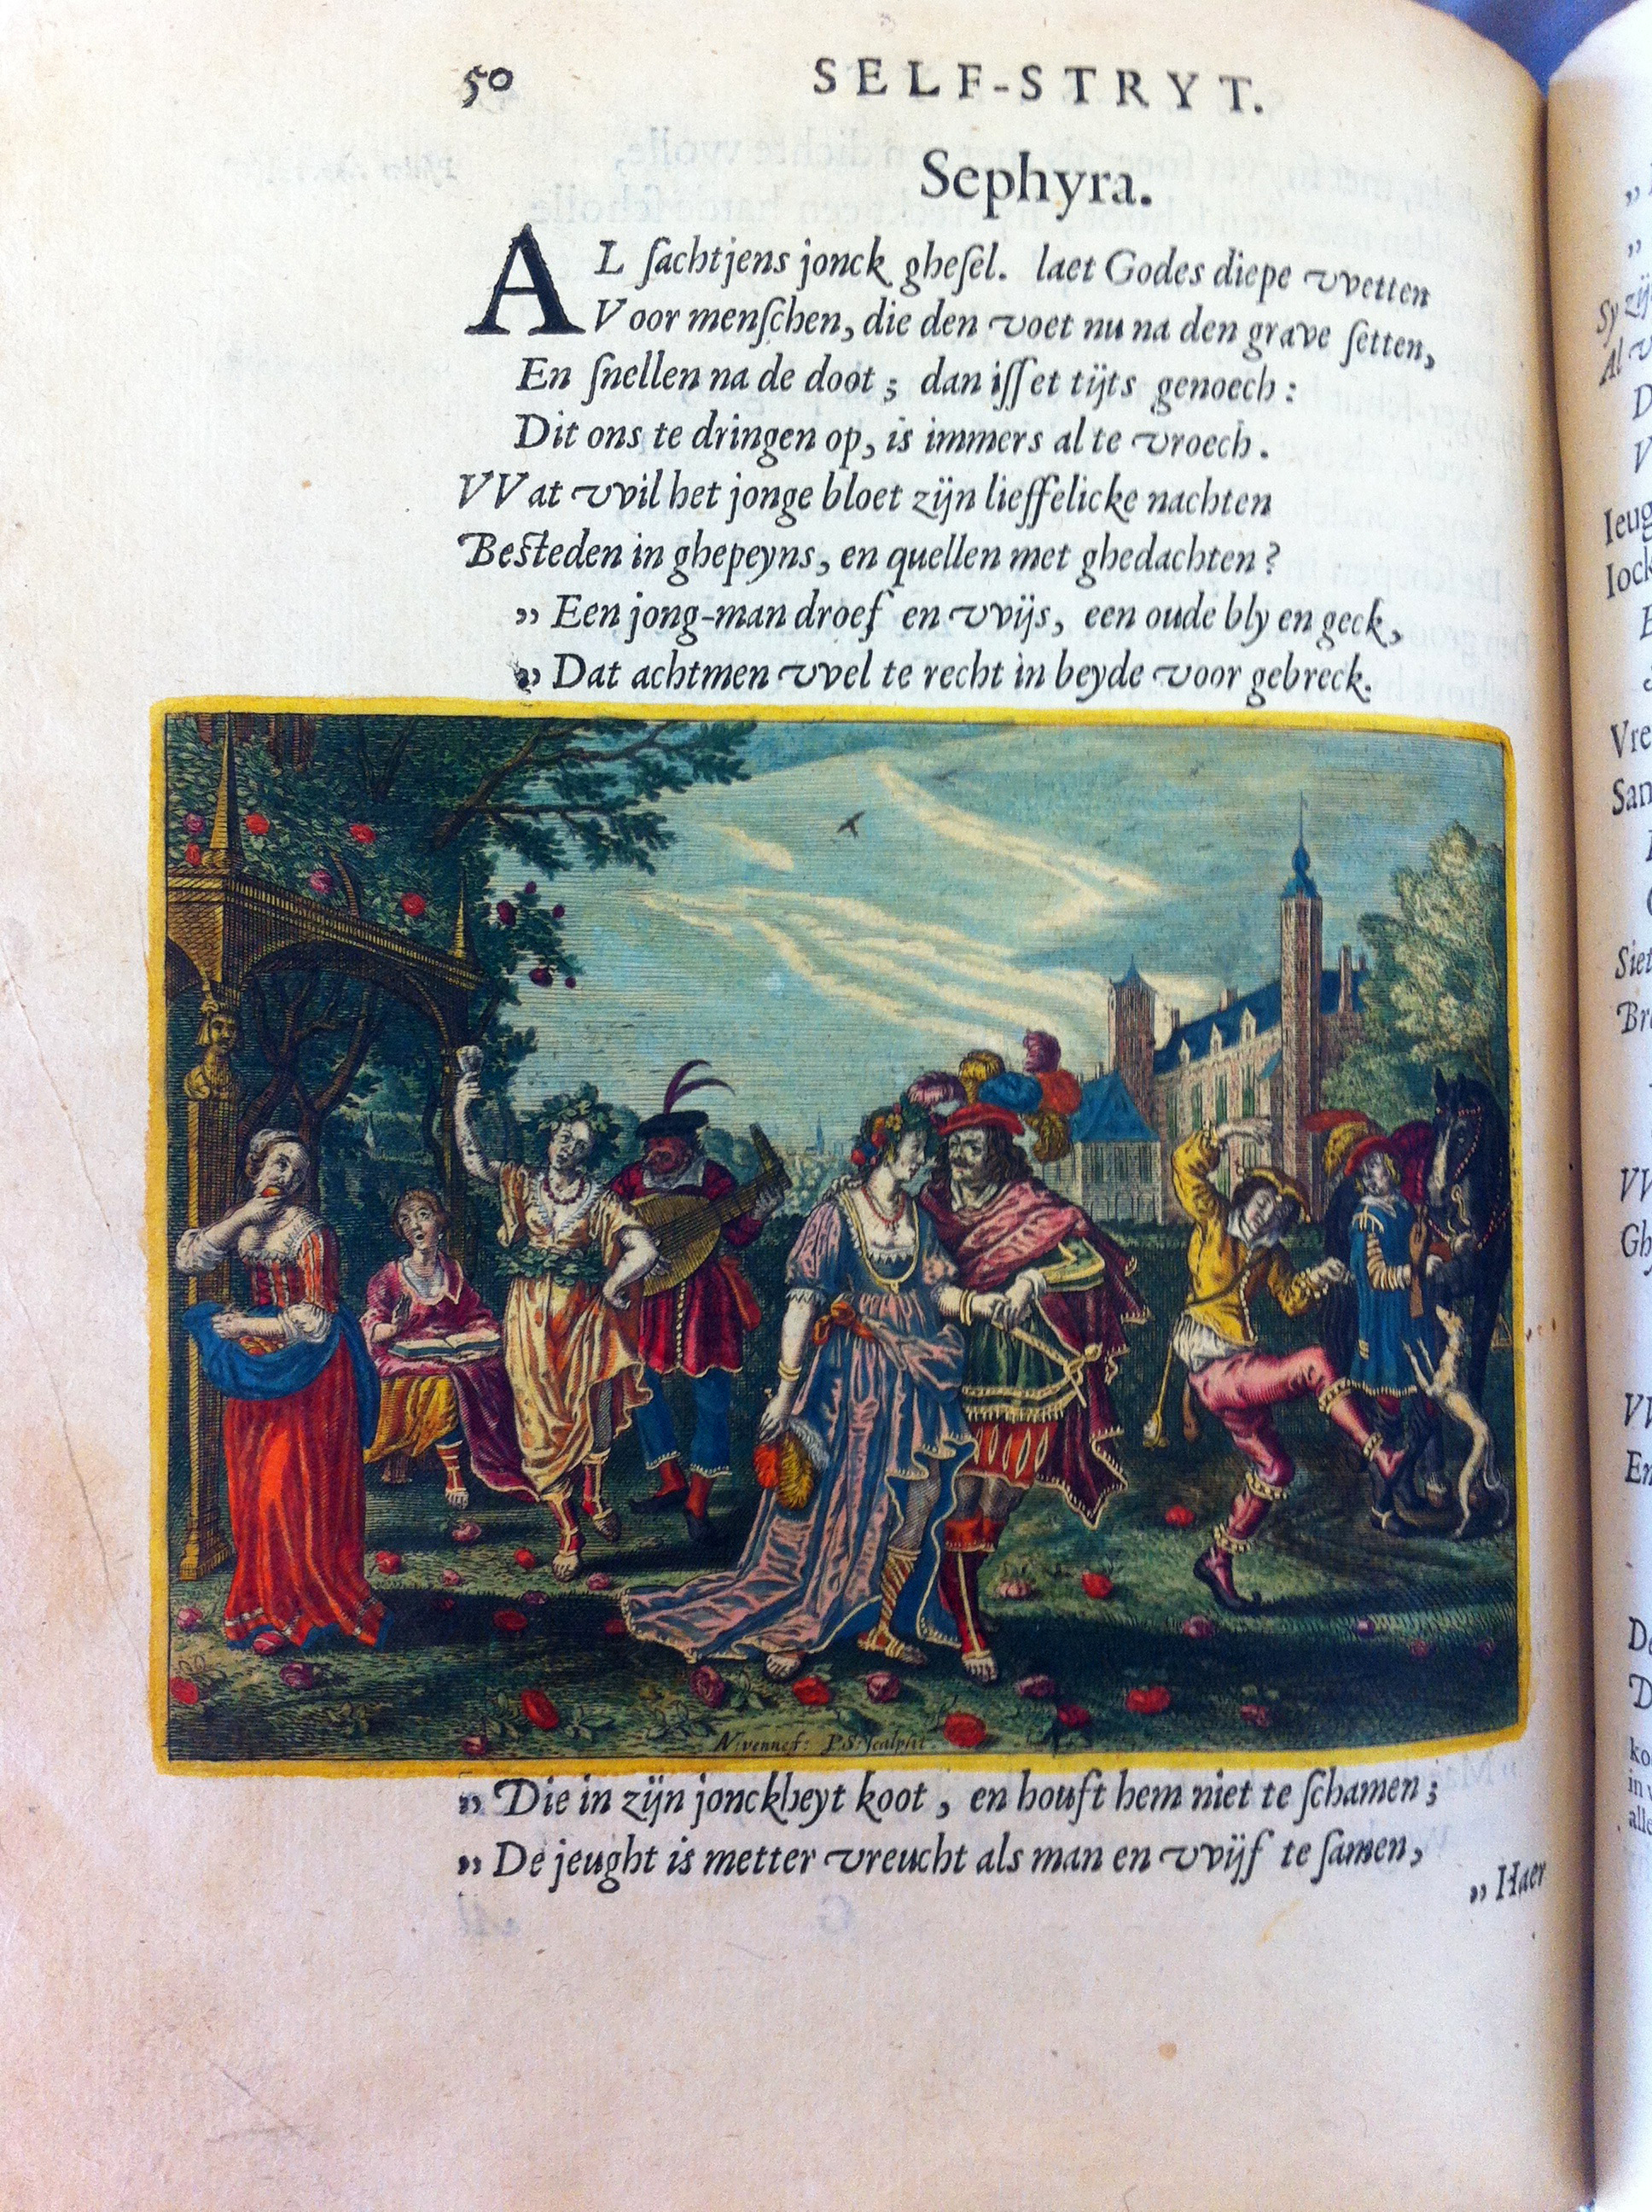 50
SELF-STRYT.
Sephyra.
AL ſachtjens jonck gheſel. laet Godes diepe vvetten
Voor menſchen, die den voet nu na den grave ſetten,
En ſnellen na de doot; dan iſſet tijts genoech:
Dit ons te dringen op, is immers al te vroech.
VVat vvil het jonge bloet zijn lieffelicke nachten
Beſteden in ghepeyns, en quellen met ghedachten?
„ Een jong-man droef en vvijs, een oude bly en geck,
„ Dat achtmen vvel te recht in beyde voor gebreck.
N: venne f: P.S: ſcalpſit.
„ Die in zijn jonckheyt koot, en houft hem niet te ſchamen;
„ De jeught is metter vreucht als man en vvijf te ſamen,
„ Haer